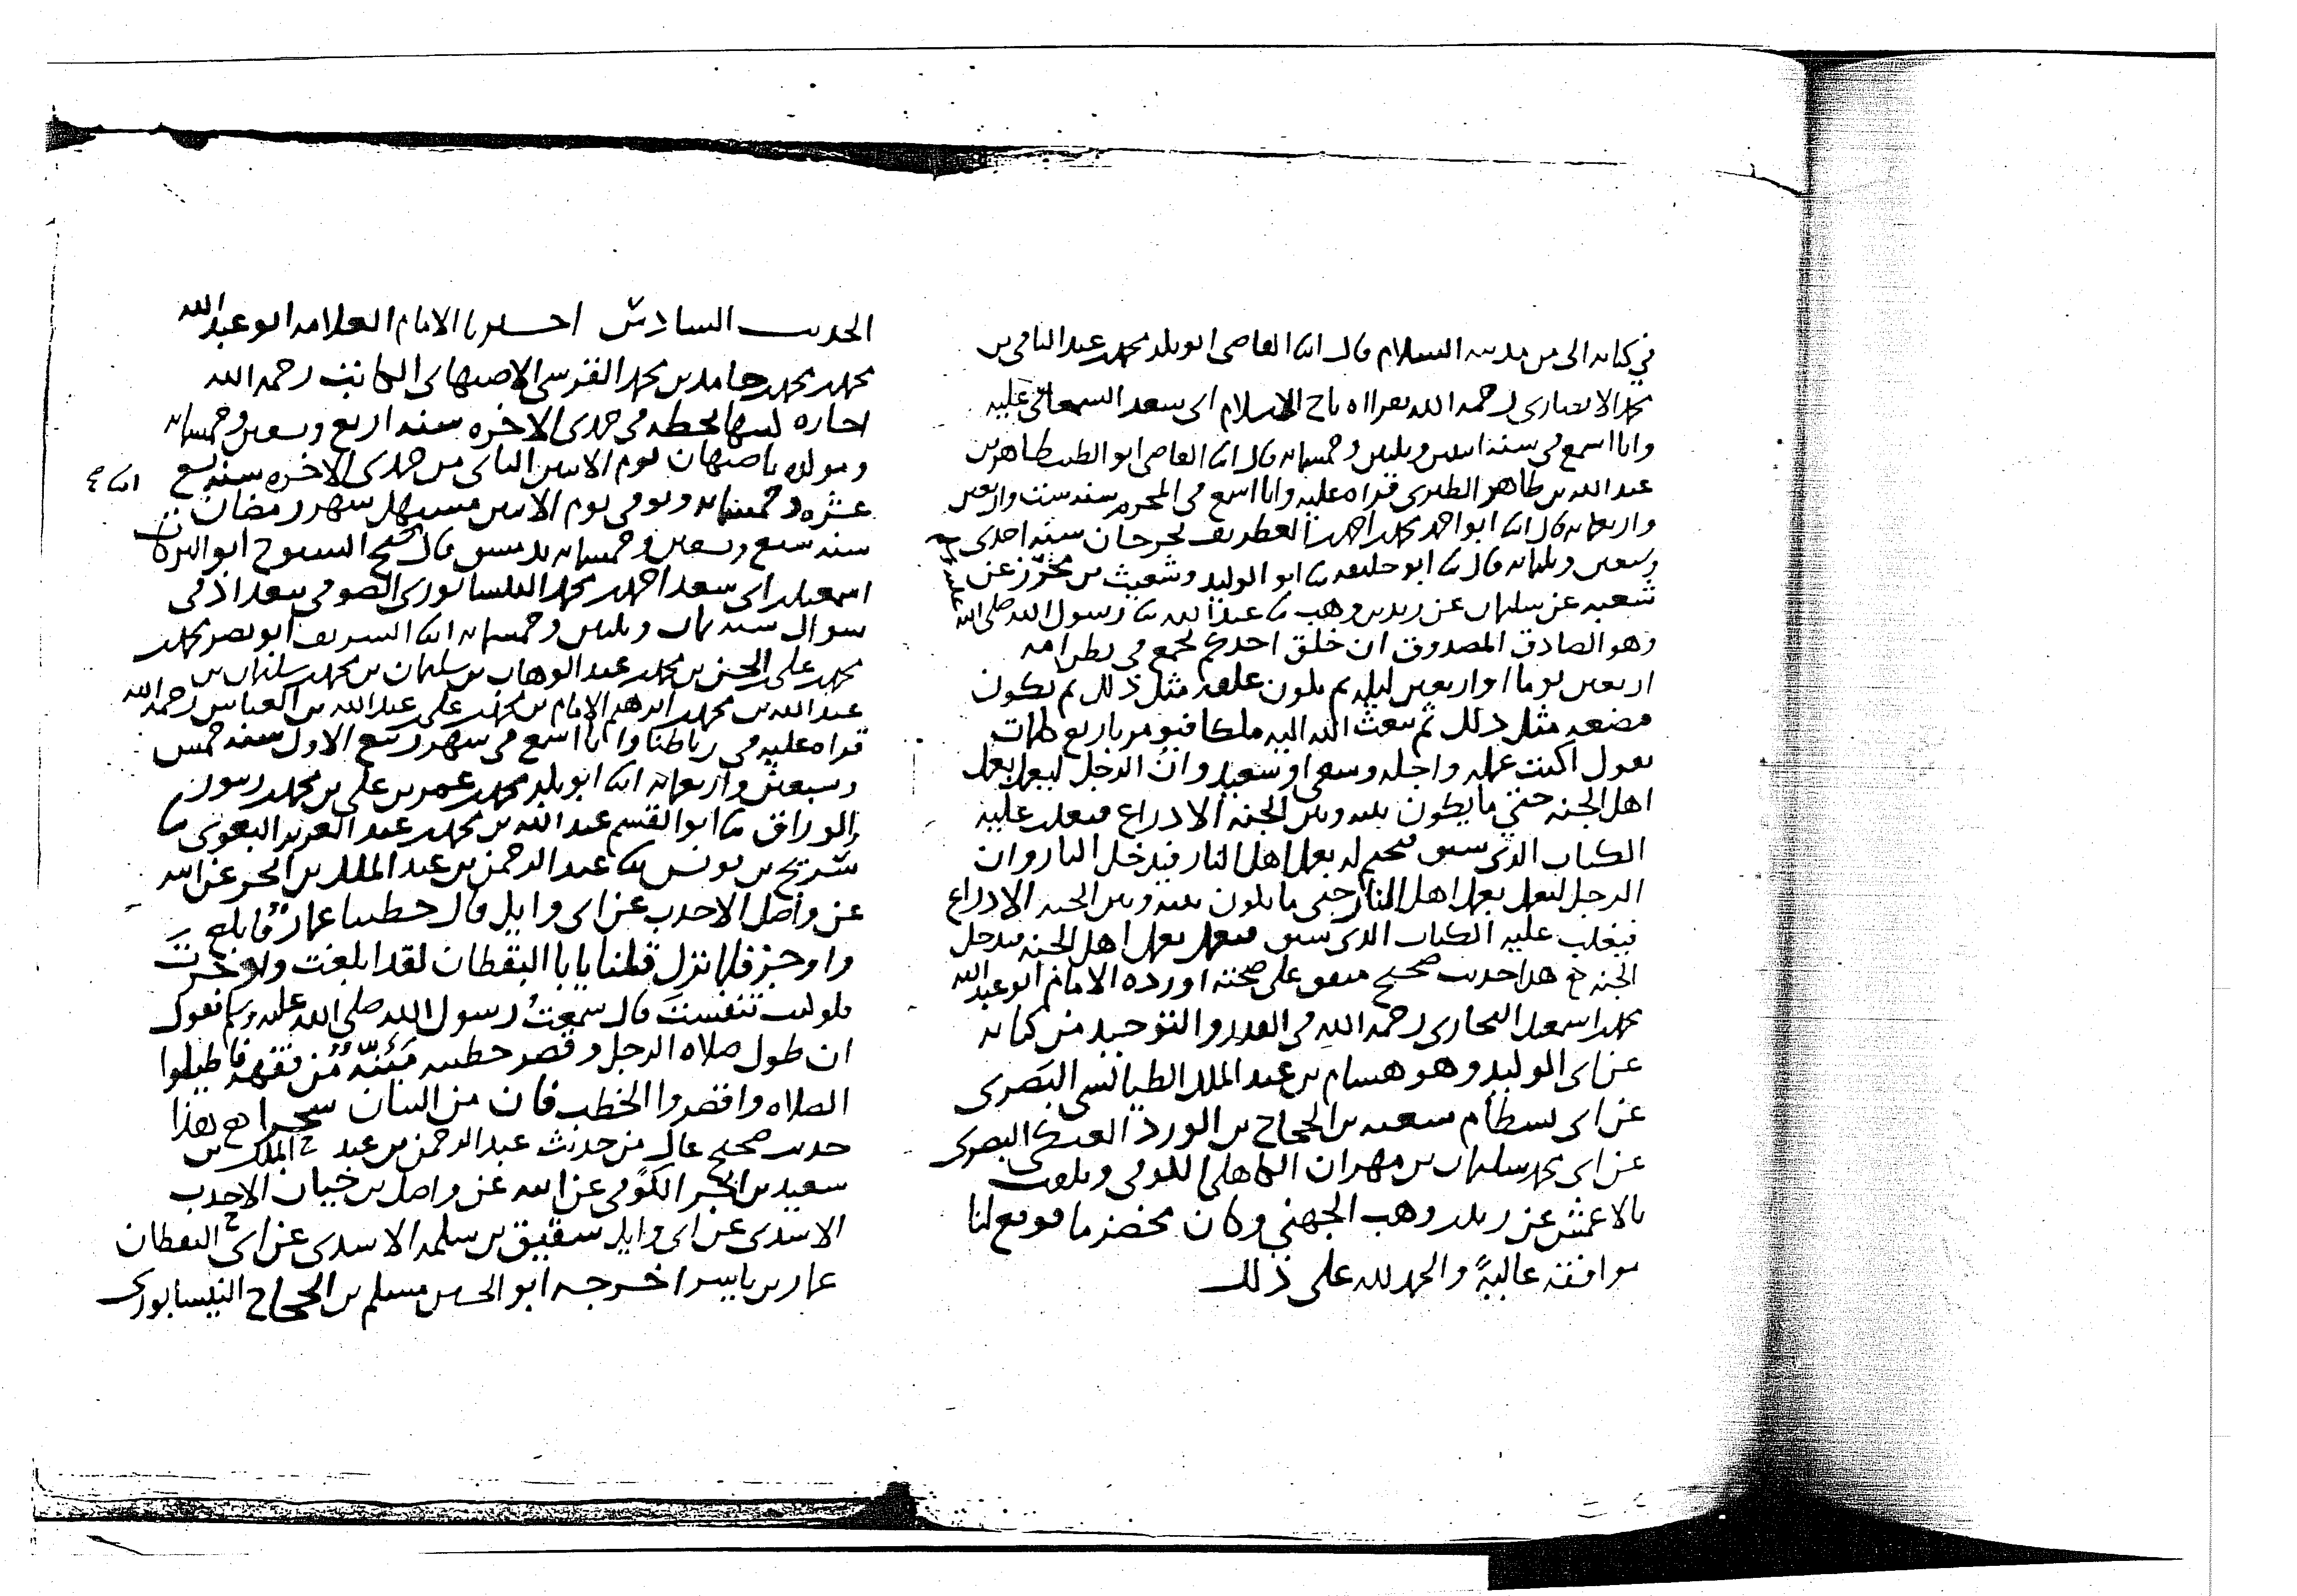 في كتابه الى من مدينة السلام قال انا القاضي ابو بكر محمد بن عبد الباقي بن
محمد الانصاري رحمه الله بقراءة تاج الاسلام ابي سعد السمعاني عليه
وانا اسمع في سنة اثنين وثلثين وخمسمائة قال انا القاضي ابو الطيب طاهر بن
عبد الله بن طاهر الطبري قراءة عليه وانا اسمع في المحرم سنة ست واربعين
واربعمائة قال انا ابو احمد محمد بن احمد بن الغطريف بجرجان سنة احدى
وسبعين وثلثمائة قال ثنا ابو خليفة ثنا ابو الوليد وشعيث بن محرز عن
شعبة عن سليمان عن زيد بن وهب ثنا عبد الله ثنا رسول الله صلى الله
عليه وسلم
وهو الصادق المصدوق ان خلق احدكم يجمع في بطن امه
اربعين يوما او اربعين ليله ثم يكون علقة مثل ذلك ثم يكون
مضغة مثل ذلك ثم يبعث الله اليه ملكا فيومر باربع كلمات
يقول اكتب عمله واجله وشقي او سعيد وان الرجل ليعمل بعمل
اهل الجنة حتى ما يكون بينه وبين الجنة الا ذراع فيغلب عليه
الكتاب الذي سبق فيختم له بعمل اهل النار فيدخل النار وان
الرجل ليعمل بعمل اهل النار حتى ما يكون بينه وبين الجنة الا ذراع
فيغلب عليه الكتاب الذي سبق فيعمل بعمل اهل الجنة فيدخل
الجنة هذا حديث صحيح متفق على صحته اورده الامام ابو عبد الله
محمد بن اسمعيل البخاري رحمه الله في القدر والتوحيد من كتابه
عن ابي الوليد وهو هشام بن عبد الملك الطيالسي البصري
عن ابي بسطام شعبة بن الحجاج بن الورد العتكي البصري
عن ابي محمد سليمان بن مهران الكاهلي الكوفي ويلقب
بالاعمش عن زيد بن وهب الجهني وكان مخضرما فوقع لنا
موافقة عالية والحمد لله على ذلك
الحديث السادس اخبرنا الامام العلامه ابو عبد الله
محمد بن محمد بن حامد بن محمد القرشي الاصبهاني الكاتب رحمه الله
اجازه كتبها بخطه في جمدى الاخره سنة اربع وتسعين وخمسمائة
ومولده باصبهان يوم الاثنين الثاني من جمدى الاخره سنة تسع
عشره وخمسمائة وتوفي يوم الاثنين مستهل شهر رمضان
سنة سبع وتسعين وخمسمائة بدمشق قال انا شيخ الشيوخ ابو البركات
اسمعيل بن ابي سعد احمد بن محمد النيسابوري الصوفي ببغداد في
شوال سنة ثمان وثلثين وخمسمائة انا الشريف ابو نصر محمد بن
محمد بن علي بن الحسن بن محمد بن عبد الوهاب بن سليمان بن محمد بن سليمان بن
عبد الله بن محمد بن ابرهيم الامام بن محمد بن علي بن عبد الله بن العباس رحمه الله
قراة عليه في رباطنا وانا اسمع في شهر ربيع الاول سنة خمس
وسبعين واربعمائة انا ابو بكر محمد بن عمر بن علي بن محمد بن زنبور
الوراق ثنا ابو القسم عبد الله بن محمد بن عبد العزيز البغوي ثنا
سريج بن يونس ثنا عبد الرحمن بن عبد الملك بن ابجر عن ابيه
عن واصل الاحدب عن ابي وايل قال خطبنا عمار فابلغ
واوجز فلما نزل قلنا يابا اليقظان لقد ابلغت واوجزت
فلو كنت تنفست قال سمعت رسول الله صلى الله عليه وسلم يقول
ان طول صلاة الرجل وقصر خطبته مئنة من فقهه فاطيلوا
الصلاة واقصروا الخطب فان من البيان سحرا هذا
حديث صحيح عال من حديث عبد الرحمن بن عبد الملك بن
سعيد بن ابجر الكوفي عن ابيه عن واصل بن حيان الاحدب
الاسدي عن ابي وايل شقيق بن سلمة الاسدي عن ابي اليقظان
عمار بن ياسر اخرجه ابو الحسين مسلم بن الحجاج النيسابوري